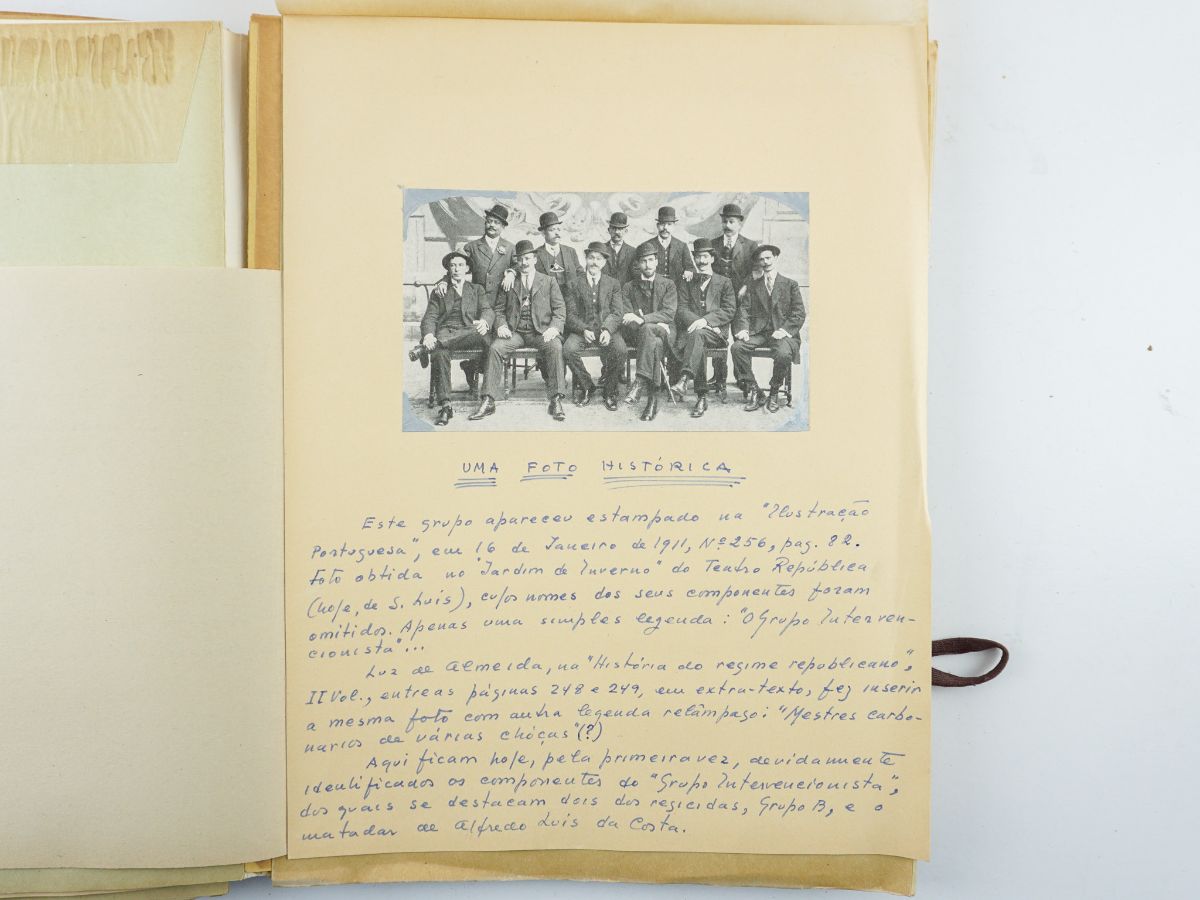 UMA FOTO HISTÓRICA
Este grupo apareceu estampado na "Ilustração
Portuguesa", em 16 de Janeiro de 1911, Nº 256, pag. 82.
Foto obtida no "Jardim de Inverno" do Teatro República
(hoje, de S. Luís), cujos nomes dos seus componentes foram
omitidos. Apenas uma simples legenda: "O Grupo Interven-
cionista"...
Luz de Almeida, na "História do regime republicano",
II Vol., entre as páginas 248 e 249, em extra-texto, fez inserir
a mesma foto com outra legenda relâmpago: "Mestres carbo-
narios de várias chóças" (?)
Aqui ficam hoje, pela primeira vez, devidamente
identificados os componentes do "Grupo Intervencionista",
dos quais se destacam dois dos regicidas, Grupo B, e o
matador de Alfredo Luís da Costa.